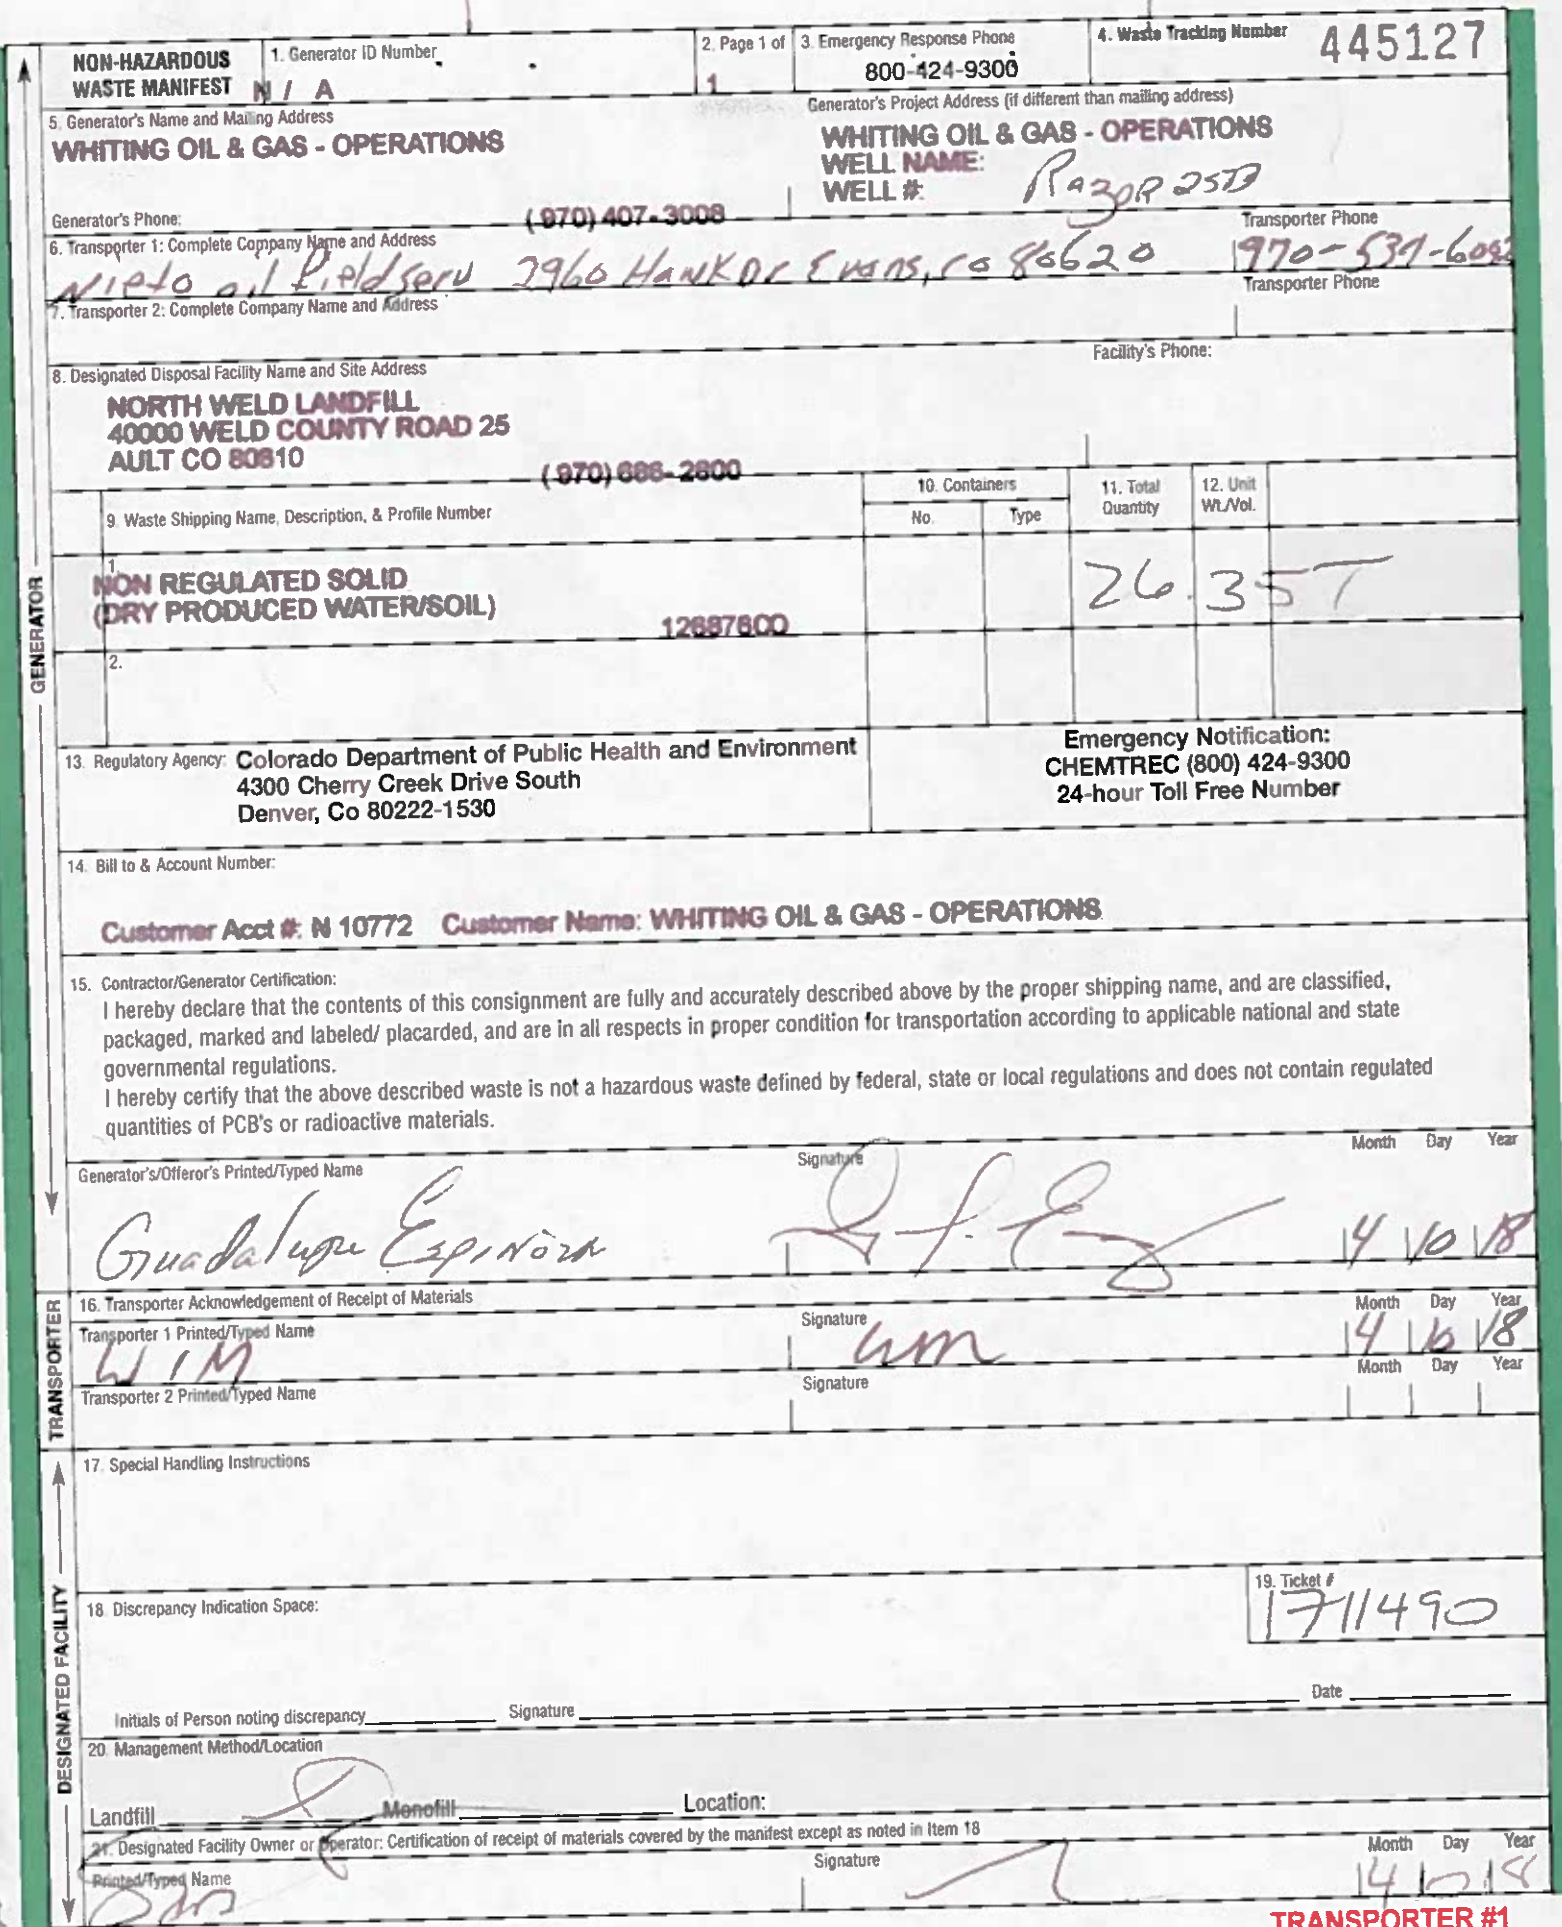 NON-HAZARDOUS
WASTE MANIFEST
1. Generator ID Number
N / A
2. Page 1 of
1
3. Emergency Response Phone
800-424-9300
4. Waste Tracking Number
445127
5. Generator's Name and Mailing Address
WHITING OIL & GAS - OPERATIONS
Generator's Project Address (if different than mailing address)
WHITING OIL & GAS - OPERATIONS
WELL NAME:
WELL #:
Razor 25B
Generator's Phone:
(970) 407-3008
6. Transporter 1: Complete Company Name and Address
Transporter Phone
Nieto oil fieldserv 2960 Hawk Dr Evans, co 80620
7. Transporter 2: Complete Company Name and Address
Transporter Phone
8. Designated Disposal Facility Name and Site Address
Facility's Phone:
NORTH WELD LANDFILL
40000 WELD COUNTY ROAD 25
AULT CO 80610
(970) 686-2800
9. Waste Shipping Name, Description, & Profile Number
10. Containers
No.
Type
11. Total
Quantity
12. Unit
Wt./Vol.
1.
NON REGULATED SOLID
(DRY PRODUCED WATER/SOIL)
12687600
26.35 T
2.
13. Regulatory Agency: Colorado Department of Public Health and Environment
4300 Cherry Creek Drive South
Denver, Co 80222-1530
Emergency Notification:
CHEMTREC (800) 424-9300
24-hour Toll Free Number
14. Bill to & Account Number:
Customer Acct #: N 10772 Customer Name: WHITING OIL & GAS - OPERATIONS
15. Contractor/Generator Certification:
I hereby declare that the contents of this consignment are fully and accurately described above by the proper shipping name, and are classified,
packaged, marked and labeled/ placarded, and are in all respects in proper condition for transportation according to applicable national and state
governmental regulations.
I hereby certify that the above described waste is not a hazardous waste defined by federal, state or local regulations and does not contain regulated
quantities of PCB's or radioactive materials.
Generator's/Offeror's Printed/Typed Name
Signature
Month Day Year
Guadalupe Espinoza
4 10 18
16. Transporter Acknowledgement of Receipt of Materials
Transporter 1 Printed/Typed Name
Signature
Month Day Year
WIM
4 10 18
Transporter 2 Printed/Typed Name
Signature
Month Day Year
17. Special Handling Instructions
18. Discrepancy Indication Space:
19. Ticket #
1711490
Initials of Person noting discrepancy
Signature
Date
20. Management Method/Location
Landfill
Monofill
Location:
21. Designated Facility Owner or Operator: Certification of receipt of materials covered by the manifest except as noted in Item 18
Printed/Typed Name
Signature
Month Day Year
4 10 18
GENERATOR
TRANSPORTER
DESIGNATED FACILITY
TRANSPORTER #1